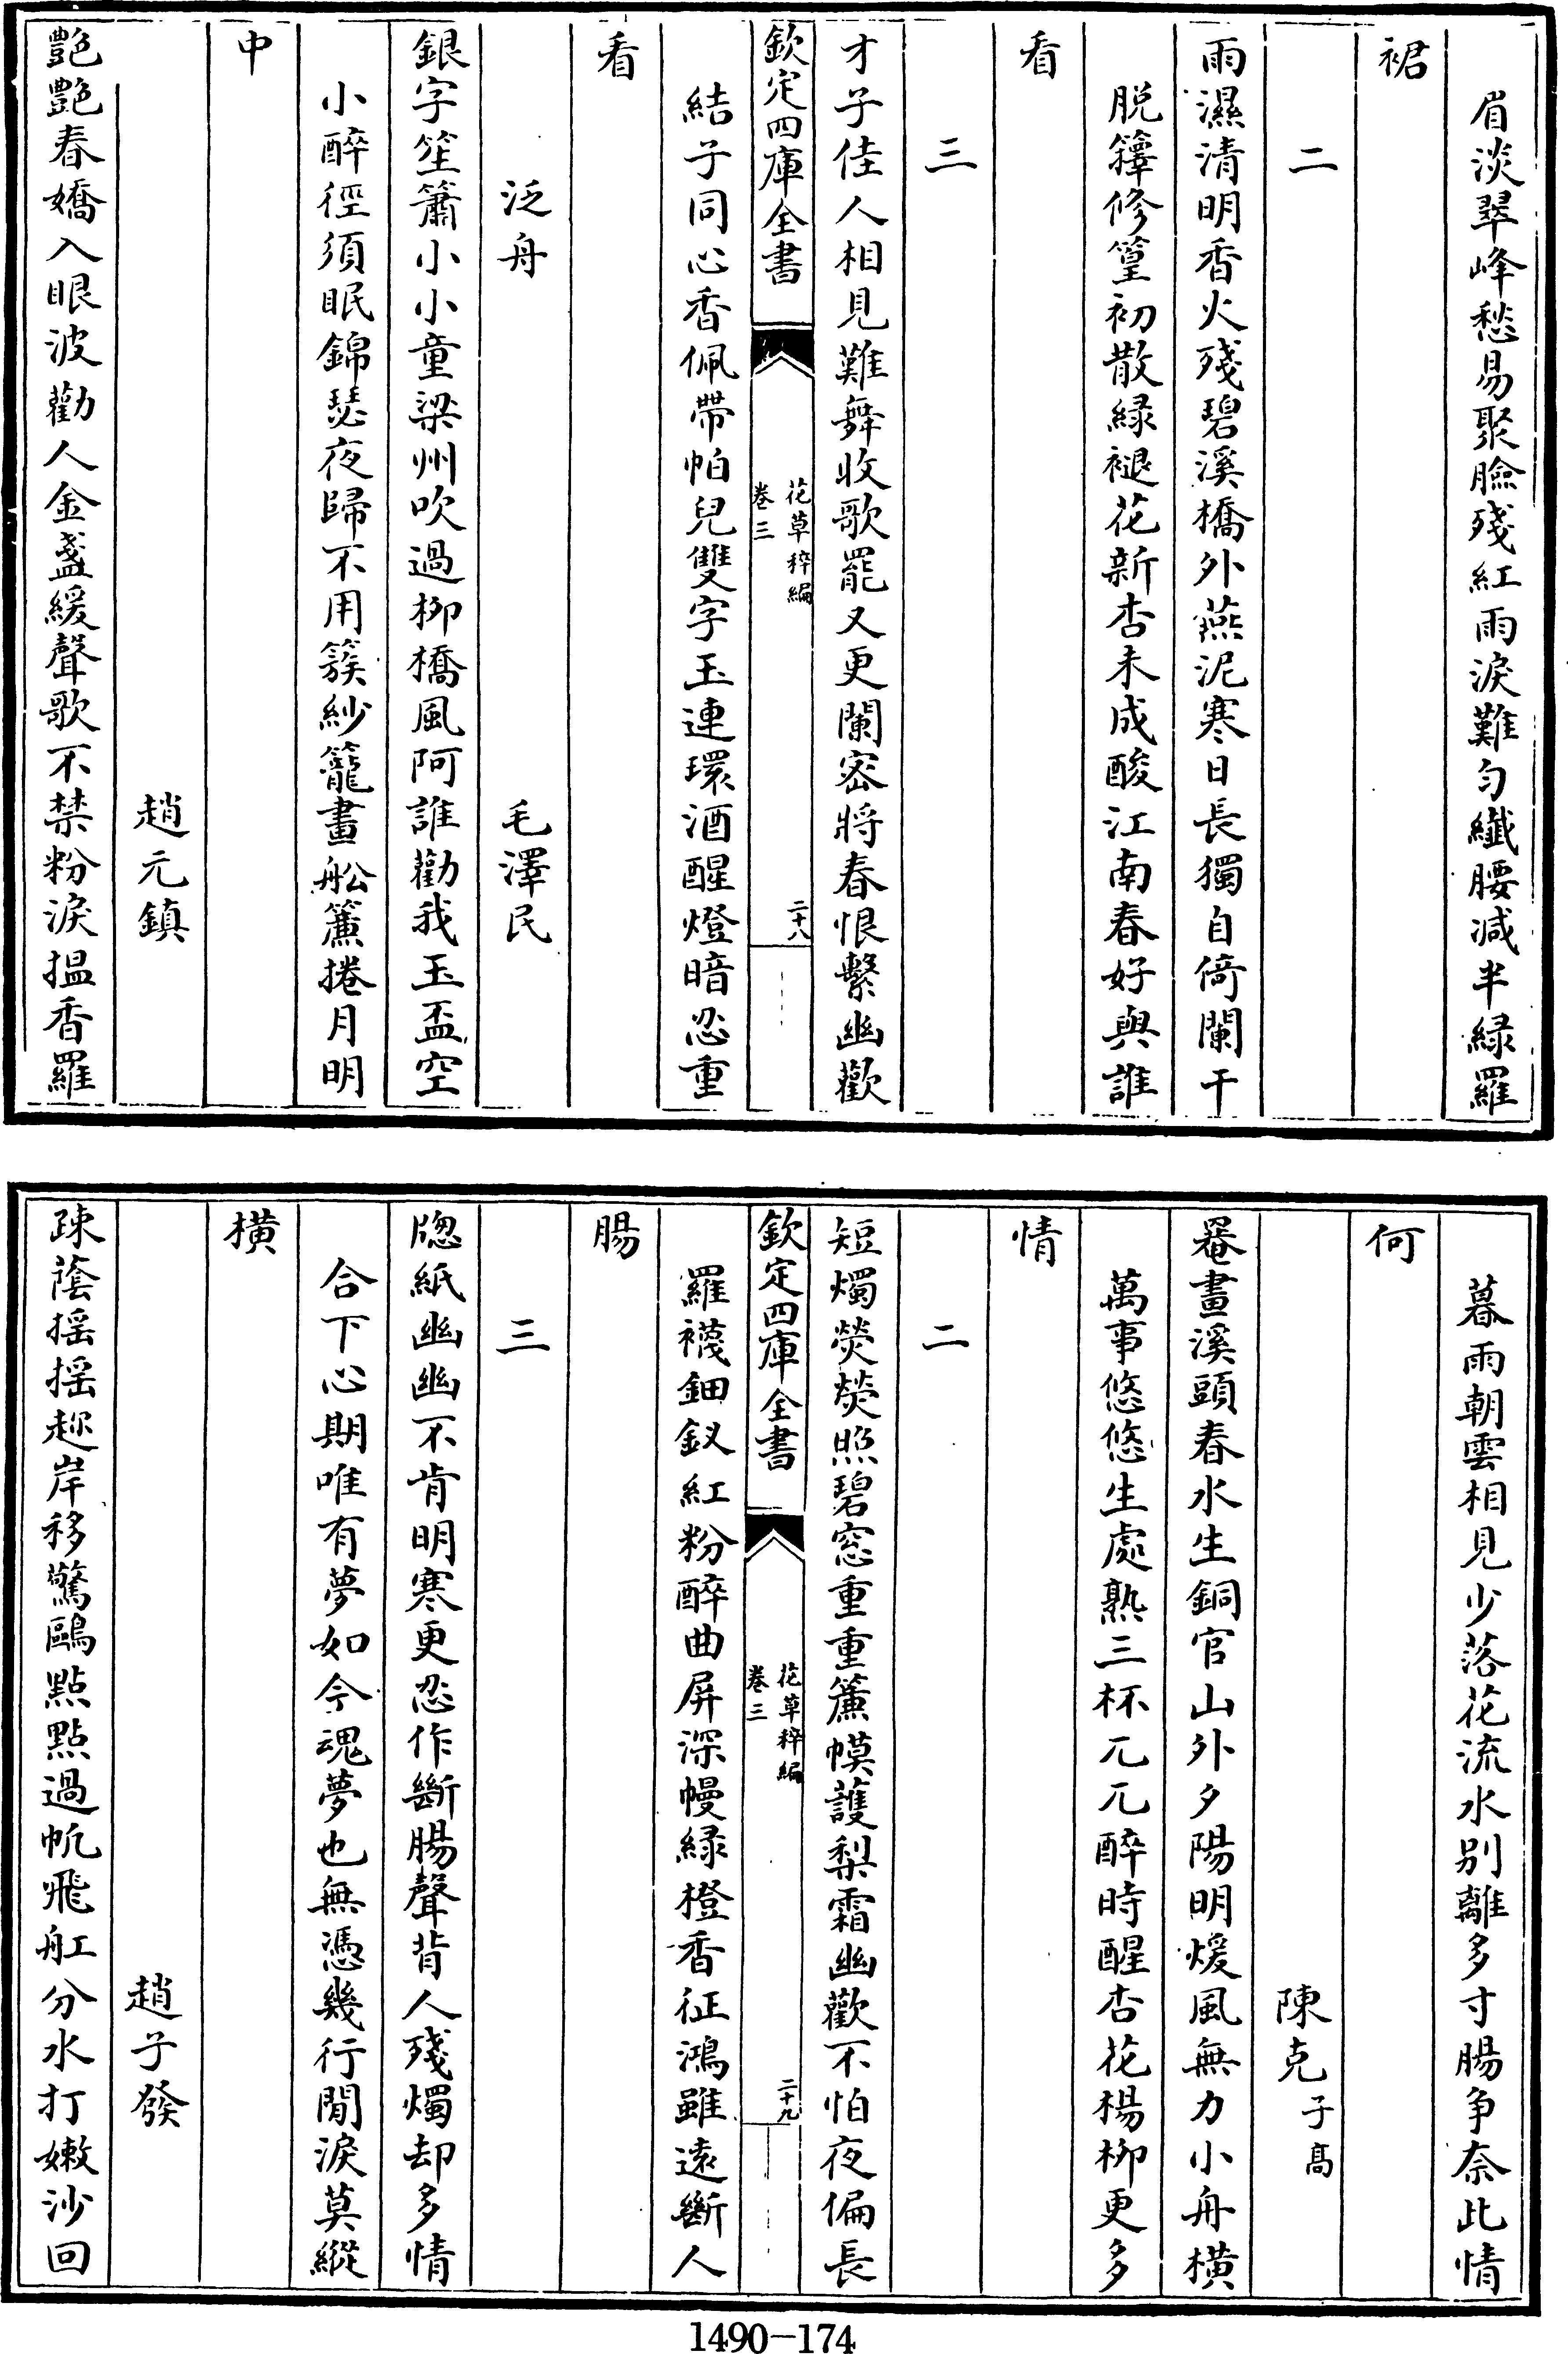 眉淡翠峰愁易聚臉殘紅雨淚難匀纎腰減半緑羅
裙
二
雨濕清明香火殘碧溪橋外燕泥寒日長獨自倚闌干
脱籜修篁初散緑褪花新杏未成酸江南春好與誰
看
三
才子佳人相見難舞收歌罷又更闌密將春恨繫幽歡
欽定四庫全書
花草稡編
卷三
二十八
結子同心香佩帶帕兒雙字玉連環酒醒燈暗忍重
看
泛舟 毛澤民
銀字笙簫小小童梁州吹過柳橋風阿誰勸我玉盃空
小醉徑須眠錦瑟夜歸不用簇紗籠畫舩簾捲月明
中
趙元鎮
艷艷春嬌入眼波勸人金盞緩聲歌不禁粉淚搵香羅
暮雨朝雲相見少落花流水别離多寸腸争奈此情
何
陳克子髙
罨畫溪頭春水生銅官山外夕陽明煖風無力小舟横
萬事悠悠生處熟三杯兀兀醉時醒杏花楊柳更多
情
二
短燭熒熒照碧窓重重簾幙護梨霜幽歡不怕夜偏長
欽定四庫全書
花草稡編
卷三
二十九
羅襪鈿釵紅粉醉曲屏深幔緑橙香征鴻雖遠斷人
腸
三
牎紙幽幽不肯明寒更忍作斷腸聲背人殘燭却多情
合下心期唯有夢如今魂夢也無憑幾行閒淚莫縱
横
趙子發
疎蔭揺揺趂岸移驚鷗點點過帆飛舡分水打嫩沙回
1490-174